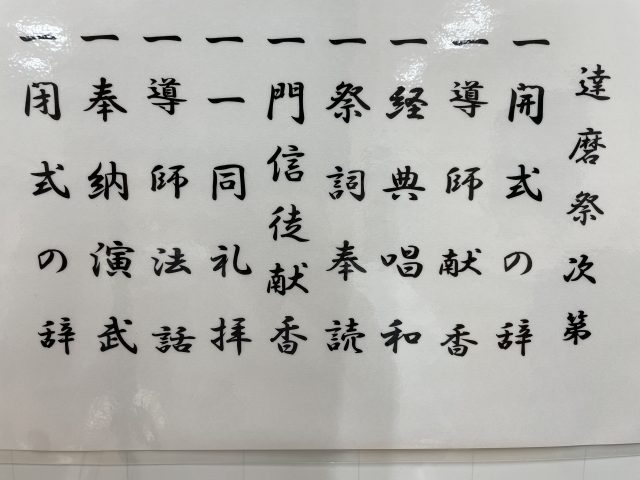 達磨祭次第
一開式の辞
一導師献香
一経典唱和
一祭詞奉読
一門信徒献香
一一同礼拝
一導師法話
一奉納演武
一閉式の辞